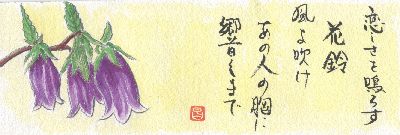 恋しさを鳴らす
花鈴
風よ吹け
あの人の胸に
響くまで